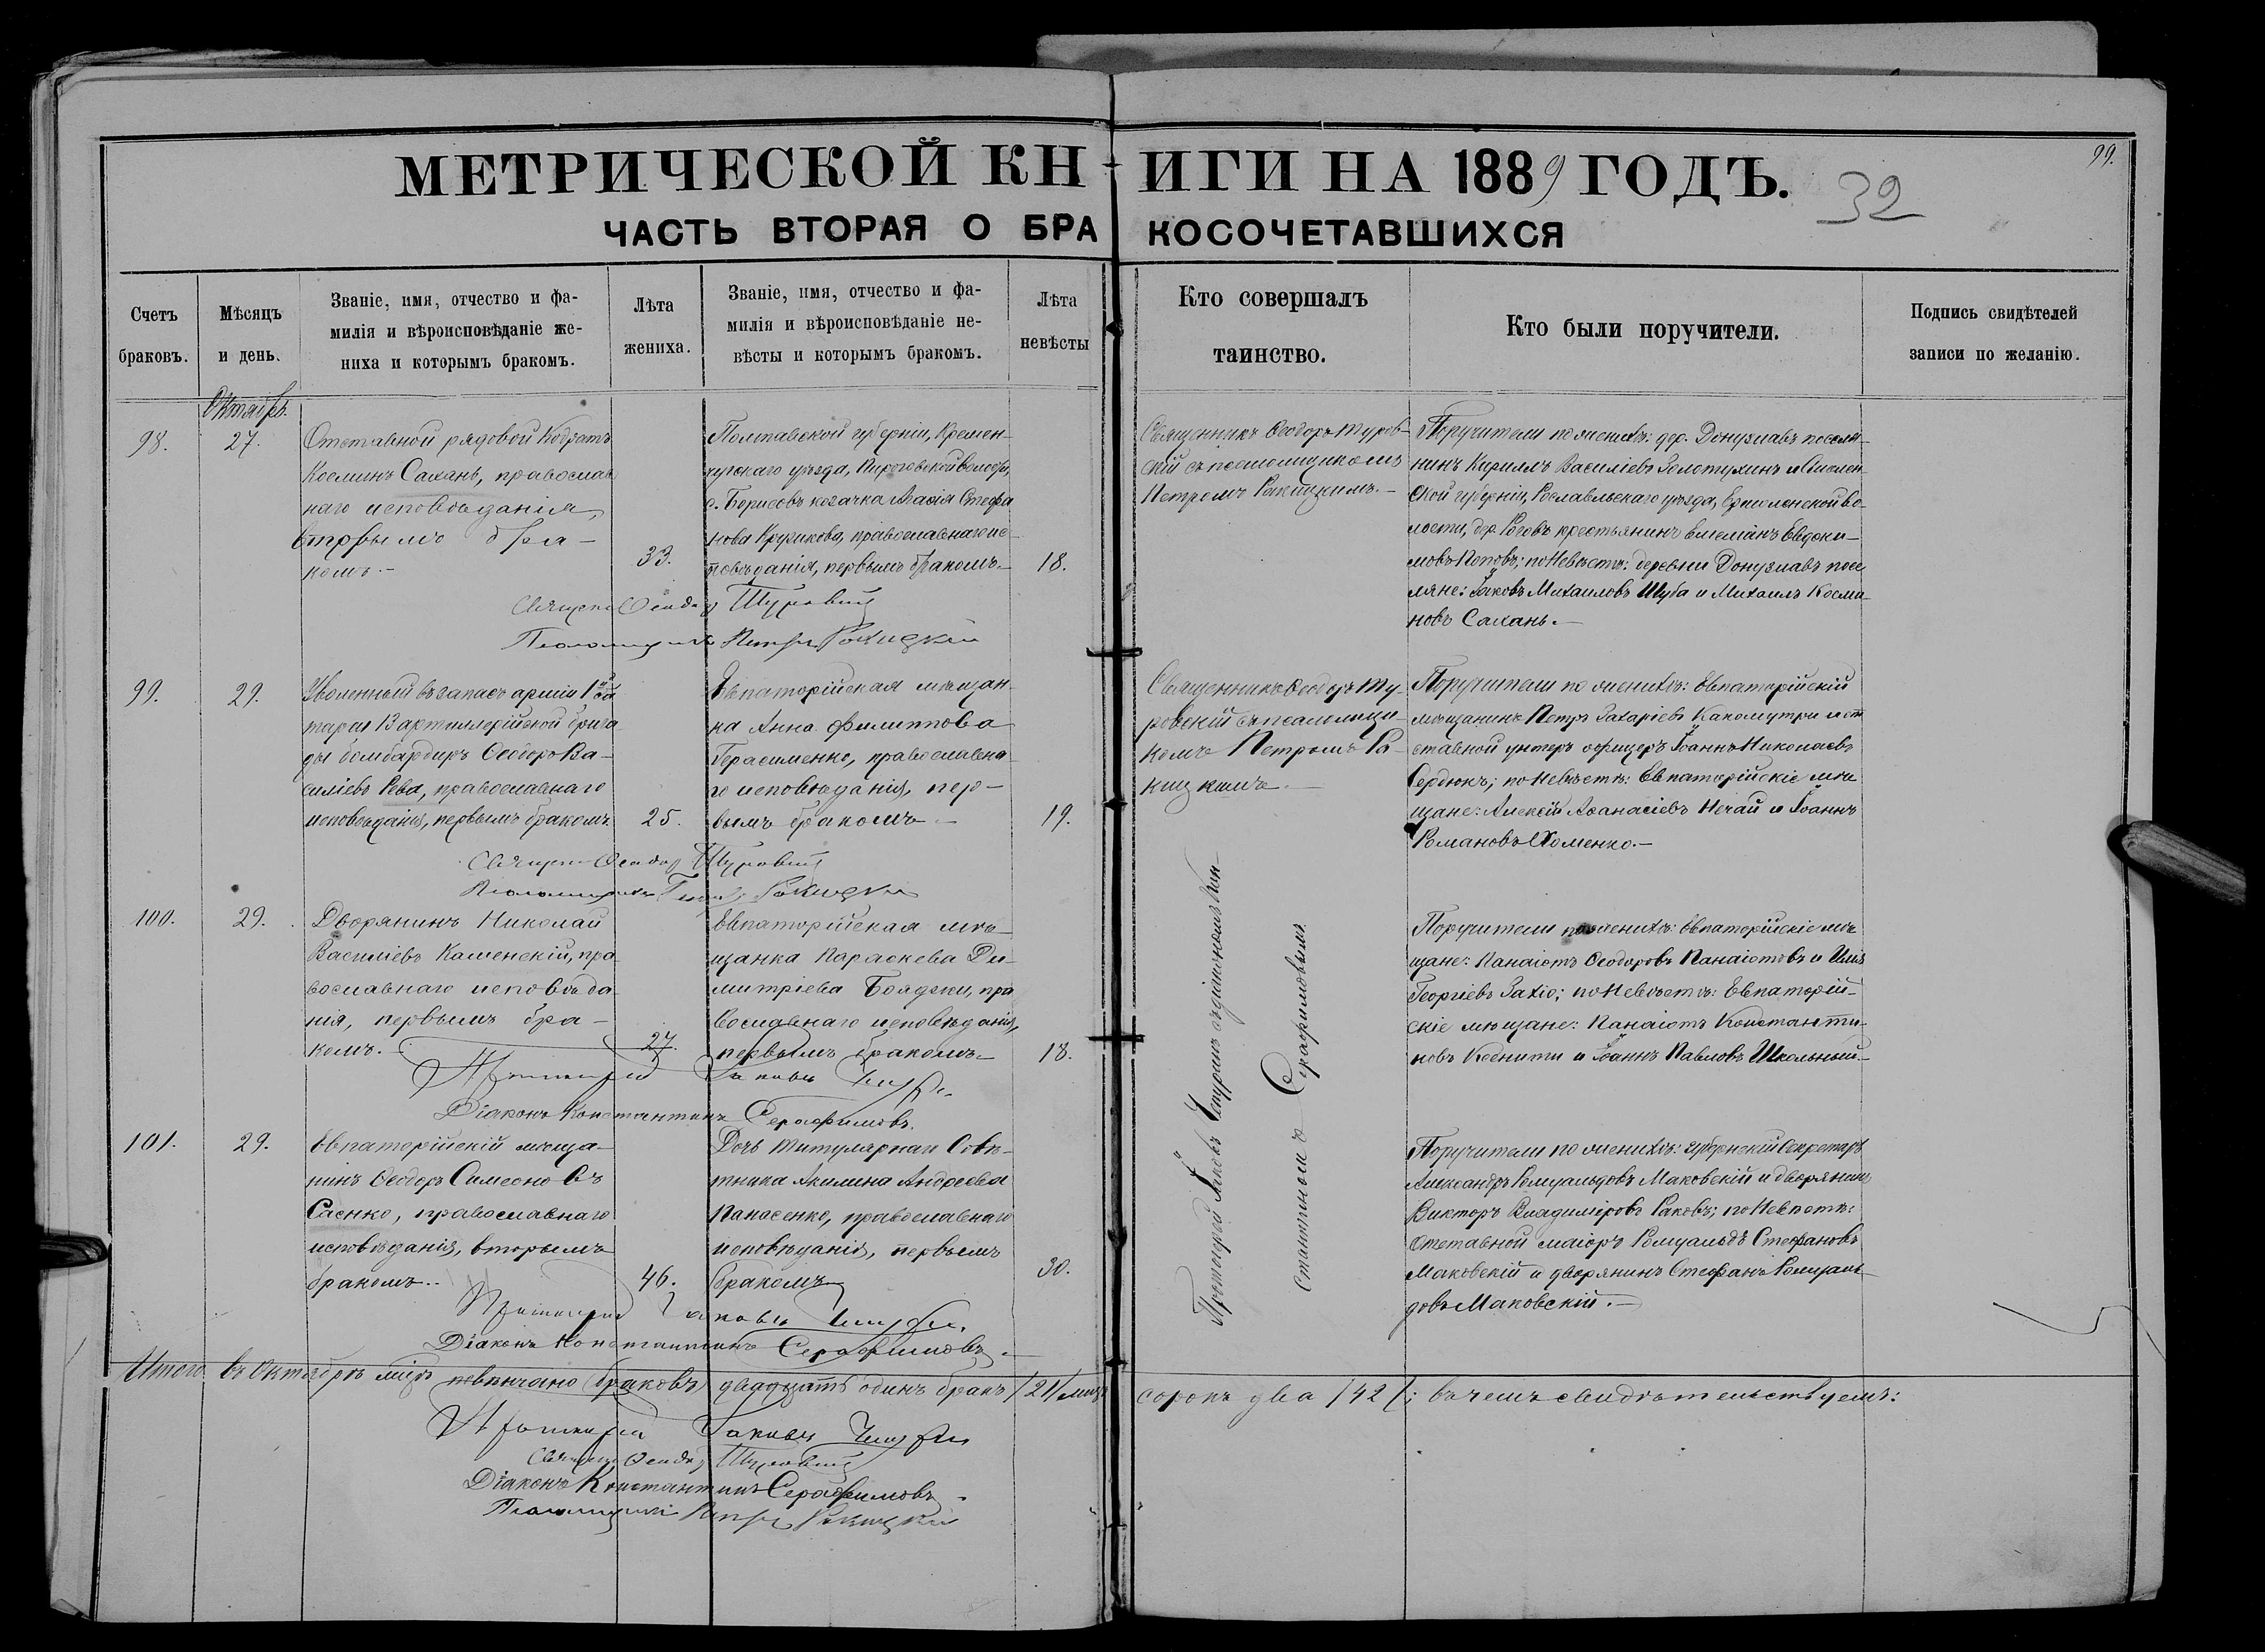 99.
МЕТРИЧЕСКОЙ КНИГИ НА 1889 ГОДЪ.
32
ЧАСТЬ ВТОРАЯ О БРАКОСОЧЕТАВШИХСЯ
Счетъ браковъ.
Мѣсяцъ и день.
Званіе, имя, отчество и фа-
милія и вѣроисповѣданіе же-
ниха и которымъ бракомъ.
Лѣта
жениха.
Званіе, имя, отчество и фа-
милія и вѣроисповѣданіе не-
вѣсты и которымъ бракомъ.
Лѣта
невѣсты
Кто совершалъ
таинство.
Кто были поручители.
Подпись свидѣтелей
записи по желанію.
Октябрь.
98.
27.
Отставной рядовой Кодратъ
Косминъ Сахань, православ
наго исповѣданія,
вторымъ бра-
комъ.-
33.
Полтавской губерніи, Кремен-
чугскаго уѣзда, Пироговской волости,
с. Борисовъ козачка Агаѳія Стефа
нова Крупикова, православнаго ис-
повѣданія, первымъ бракомъ.-
18.
Священникъ Ѳеодоръ Туров-
скій съ псаломщикомъ
Петромъ Ракицкимъ.-
Поручители по женихѣ: дер. Донузлавъ поселя-
нинъ Кириллъ Василіевъ Золотухинъ и Смолен-
ской губерніи, Рославльскаго уѣзда, во-
лости, дер. Роговъ крестьянинъ Евдоки-
мовъ Поповъ; по невѣстѣ: деревни Донузлавъ посе
ляне: Іаковъ Михаиловъ Шуба и Михаилъ Косми-
новъ Сахань.-
Священ. Ѳеодоръ Туровскій
Псаломщикъ Петръ Ракицкій
99.
29.
Уволенный въ запасъ арміи 1ой ба
тареи 13 артиллерійской брига
ды бомбардиръ Ѳеодоръ Ва-
силіевъ Рева, православнаго
исповѣданія, первымъ бракомъ.
25.
Евпаторійская мѣщан-
ка Анна Филиппова
Герасименко, православна-
го исповѣданія, пер-
вымъ бракомъ.-
19.
Священникъ Ѳеодоръ Ту-
ровскій съ псаломщи-
комъ Петромъ Ра-
кицкимъ.-
Поручители по женихѣ: Евпаторійскій
мѣщанинъ Петръ Захаріевъ Какомутри и от
ставной унтеръ офицеръ Іоаннъ Николаевъ
Сердюкъ; по невѣстѣ: Евпаторійскіе мѣ
щане: Алексій Аѳанасіевъ Нечай и Іоаннъ
Романовъ Хоменко.-
Священ. Ѳеодоръ Туровскій
Псаломщикъ Петръ Ракицкій
100.
29.
Дворянинъ Николай
Василіевъ Каменскій, пра
вославнаго исповѣда
нія, первымъ бра-
комъ.-
27.
Евпаторійская мѣ-
щанка Параскева Ди-
митріева Бояджи, пра
вославнаго исповѣданія,
первымъ бракомъ.-
18.
Протоіерей Іаковъ Чепуринъ съ діакономъ Кон-
стантиномъ Серафимовымъ
Поручители по женихѣ: Евпаторійскіе мѣ
щане: Панаіотъ Ѳеодоровъ Панаіотовъ и Илія
Георгіевъ Захіо; по невѣстѣ: Евпаторій-
скіе мѣщане: Панаіотъ Константи-
новъ и Іоаннъ Павловъ Школьный.-
Протоіерей Іаковъ Чепуринъ
Діаконъ Константинъ Серафимовъ.
101.
29.
Евпаторійскій мѣща-
нинъ Ѳеодоръ Симеоновъ
Саенко, православнаго
исповѣданія, вторымъ
бракомъ..
46.
Дочь титулярнаго Совѣ-
тника Акилина Андреева
Панасенко, православнаго
исповѣданія, первымъ
бракомъ
30.
Поручители по женихѣ: губернскій Секретарь
Александръ Ромуальдовъ Маковскій и дворянинъ
Викторъ Владиміровъ Раковъ; по невѣстѣ:
Отставной маіоръ Ромуальдъ Стефановъ
Маковскій и дворянинъ Стефанъ Ромуаль-
довъ Маковскій.-
Протоіерей Іаковъ Чепуринъ
Діаконъ Константинъ Серафимовъ.
Итого въ Октябрѣ мцѣ повѣнчано браковъ двадцать одинъ бракъ /21/ лицъ сорокъ два /42/; въ чемъ свидѣтельствуемъ:
Протоіерей Іаковъ Чепуринъ
Священ. Ѳеодоръ Туровскій
Діаконъ Константинъ Серафимовъ.
Псаломщикъ Петръ Ракицкій